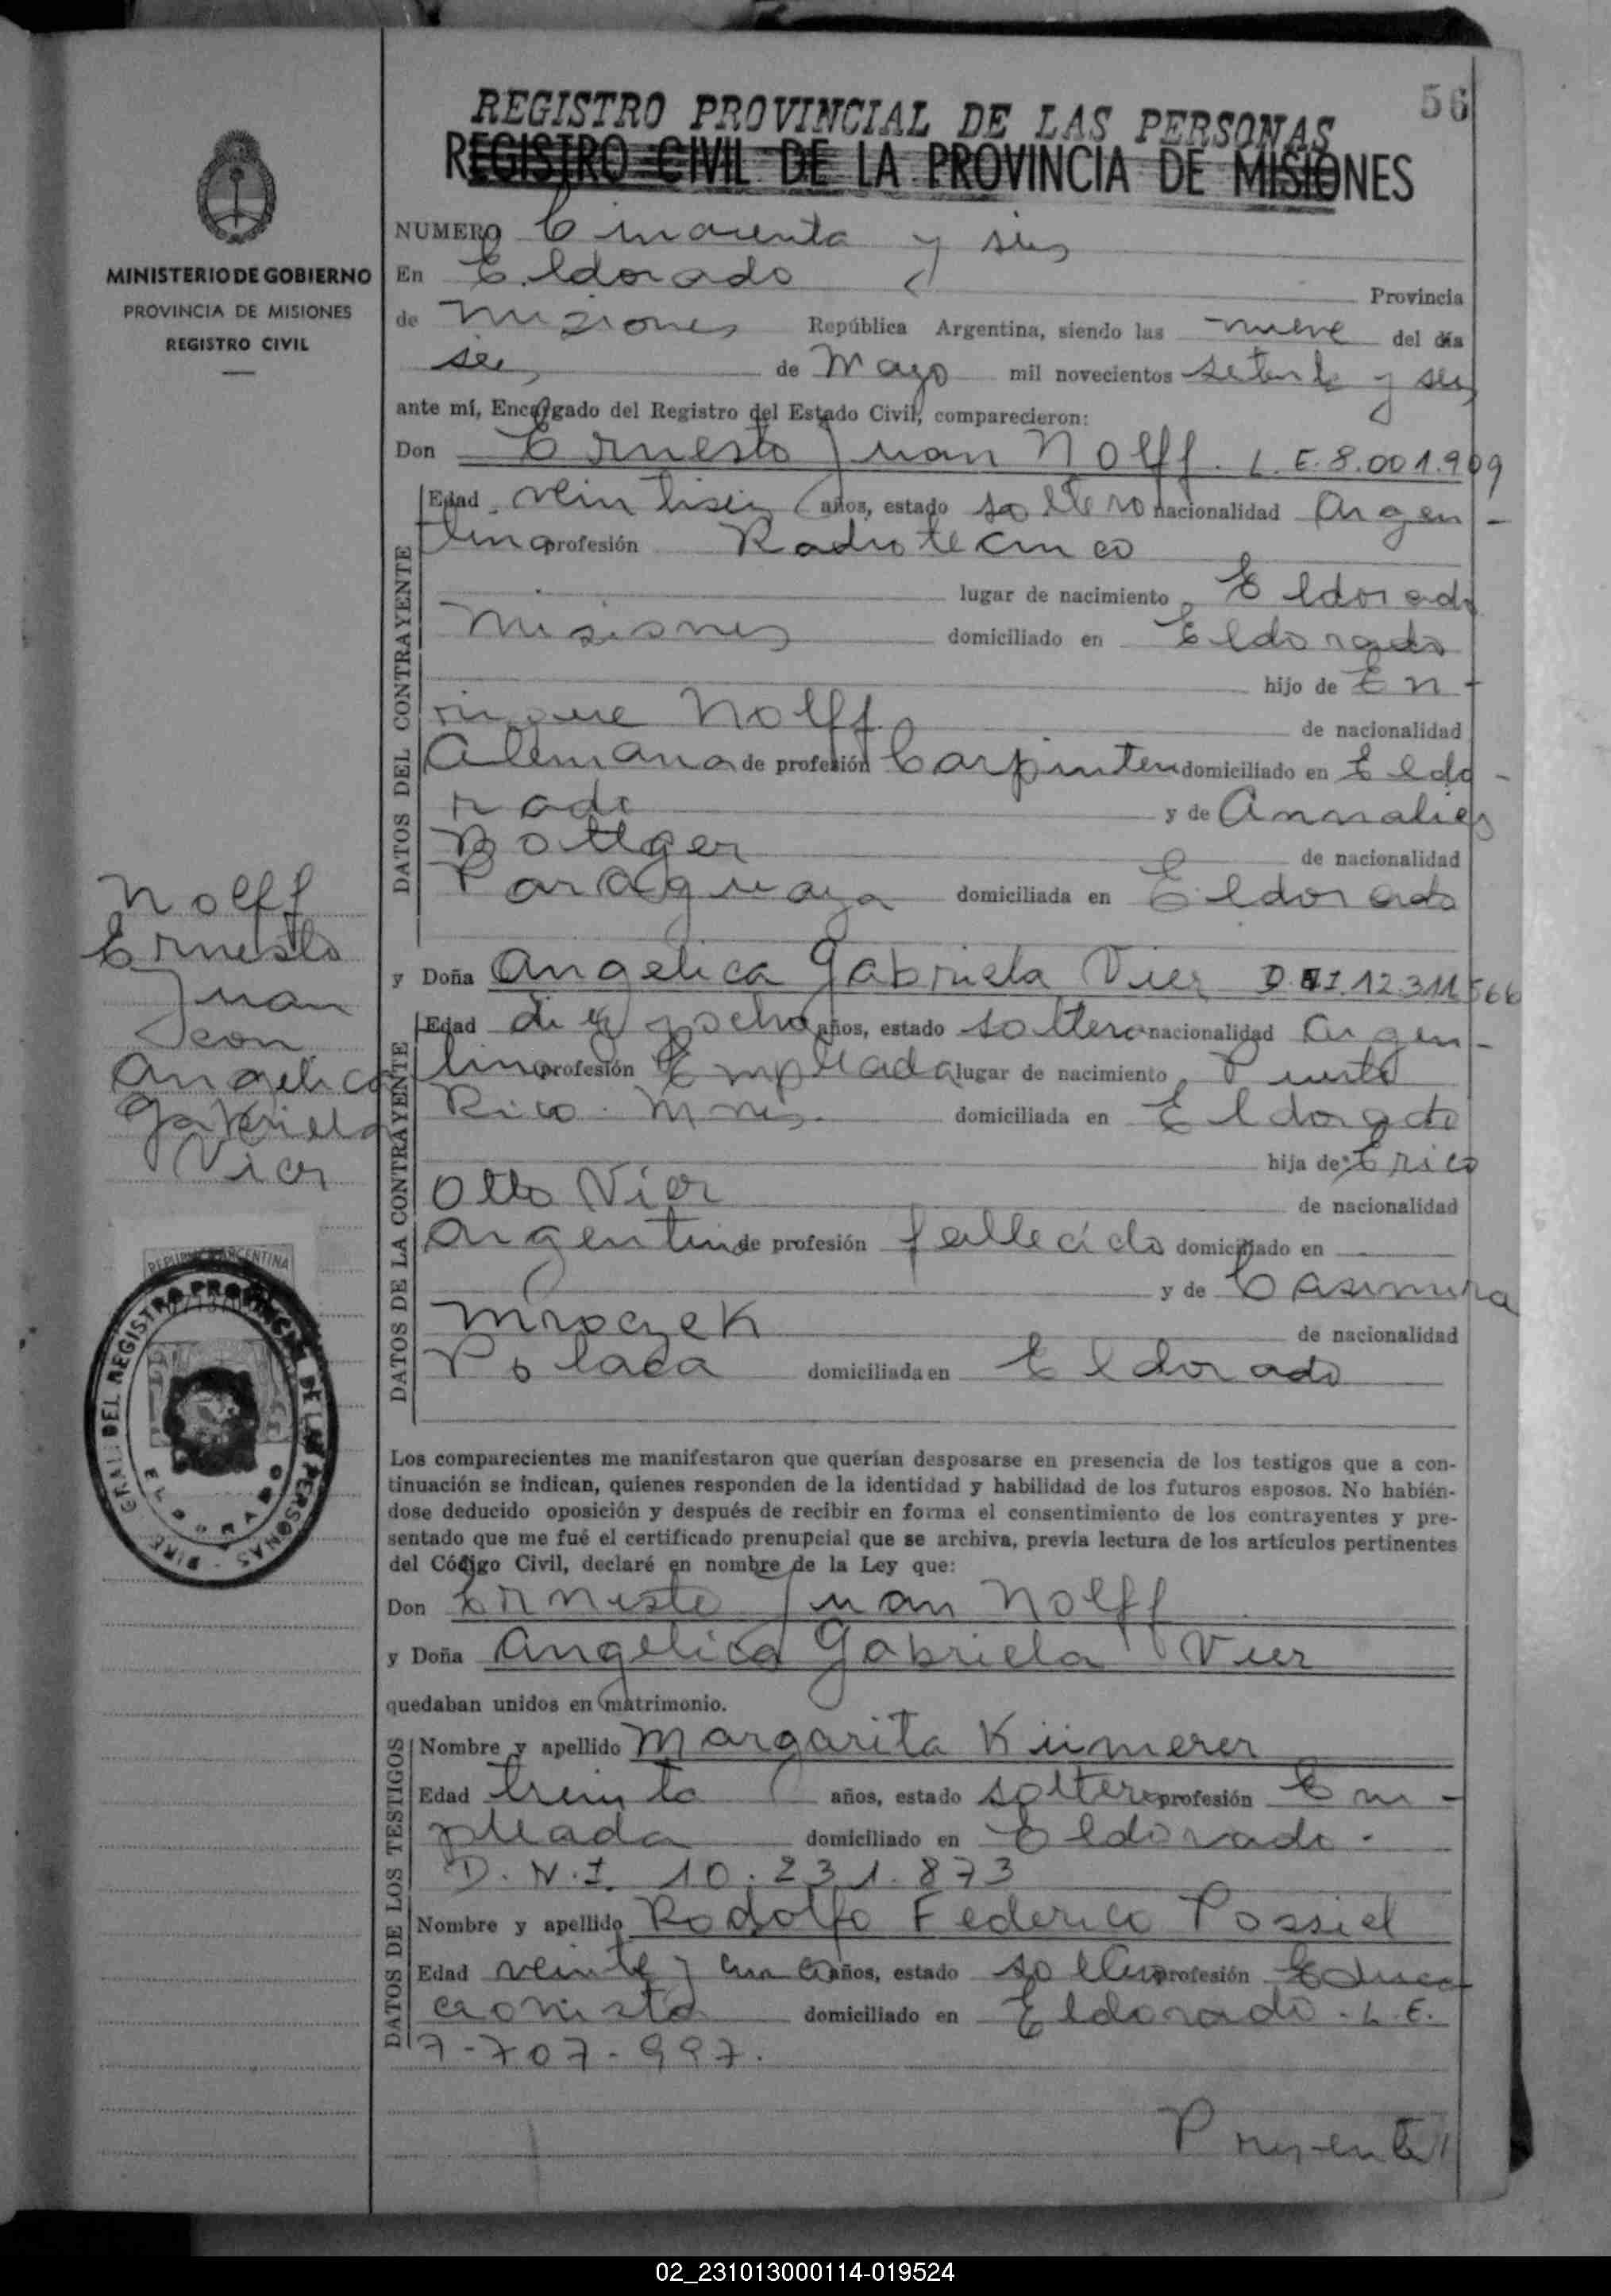 56
REGISTRO PROVINCIAL DE LAS PERSONAS
REGISTRO CIVIL DE LA PROVINCIA DE MISIONES
MINISTERIO DE GOBIERNO
PROVINCIA DE MISIONES
REGISTRO CIVIL
NUMERO Cincuenta y seis
En Eldorado Provincia
de Misiones República Argentina, siendo las nueve del día
seis de Mayo mil novecientos setenta y seis
ante mí, Encargado del Registro del Estado Civil, comparecieron:
Don Ernesto Juan Nolff. L.E. 8.001.909
DATOS DEL CONTRAYENTE
Edad veintiseis años, estado soltero nacionalidad Argen-
tina profesión Radiotecnico
lugar de nacimiento Eldorado
Misiones domiciliado en Eldorado
hijo de En-
rique Nolff de nacionalidad
Alemana de profesión Carpintero domiciliado en Eldo-
rado y de Annalies
Bottger de nacionalidad
Paraguaya domiciliada en Eldorado
Nolff
Ernesto
Juan
con
Angelica
Gabriela
Vier
y Doña Angelica Gabriela Vier D.N.I. 12.311.566
DATOS DE LA CONTRAYENTE
Edad diez y ocho años, estado soltera nacionalidad Argen-
tina profesión Empleada lugar de nacimiento Puerto
Rico. Mnes. domiciliada en Eldorado
hija de Erico
Otto Vier de nacionalidad
Argentino de profesión fallecido domiciliado en
y de Casimira
Mroczek de nacionalidad
Polaca domiciliada en Eldorado
REPUBLICA ARGENTINA
GRAL. DEL REGISTRO PROVINCIAL DE LAS PERSONAS - DIRE
ELDORADO
Los comparecientes me manifestaron que querían desposarse en presencia de los testigos que a con-
tinuación se indican, quienes responden de la identidad y habilidad de los futuros esposos. No habién-
dose deducido oposición y después de recibir en forma el consentimiento de los contrayentes y pre-
sentado que me fué el certificado prenupcial que se archiva, previa lectura de los artículos pertinentes
del Código Civil, declaré en nombre de la Ley que:
Don Ernesto Juan Nolff
y Doña Angelica Gabriela Vier
quedaban unidos en matrimonio.
DATOS DE LOS TESTIGOS
Nombre y apellido Margarita Kümerer
Edad treinta años, estado soltera profesión Em-
pleada domiciliado en Eldorado.
D.N.I. 10.231.873
Nombre y apellido Rodolfo Federico Possiel
Edad veinte y años, estado soltero profesión Educa
cionista domiciliado en Eldorado. L.E.
7-707-997.
Presente
02_231013000114-019524